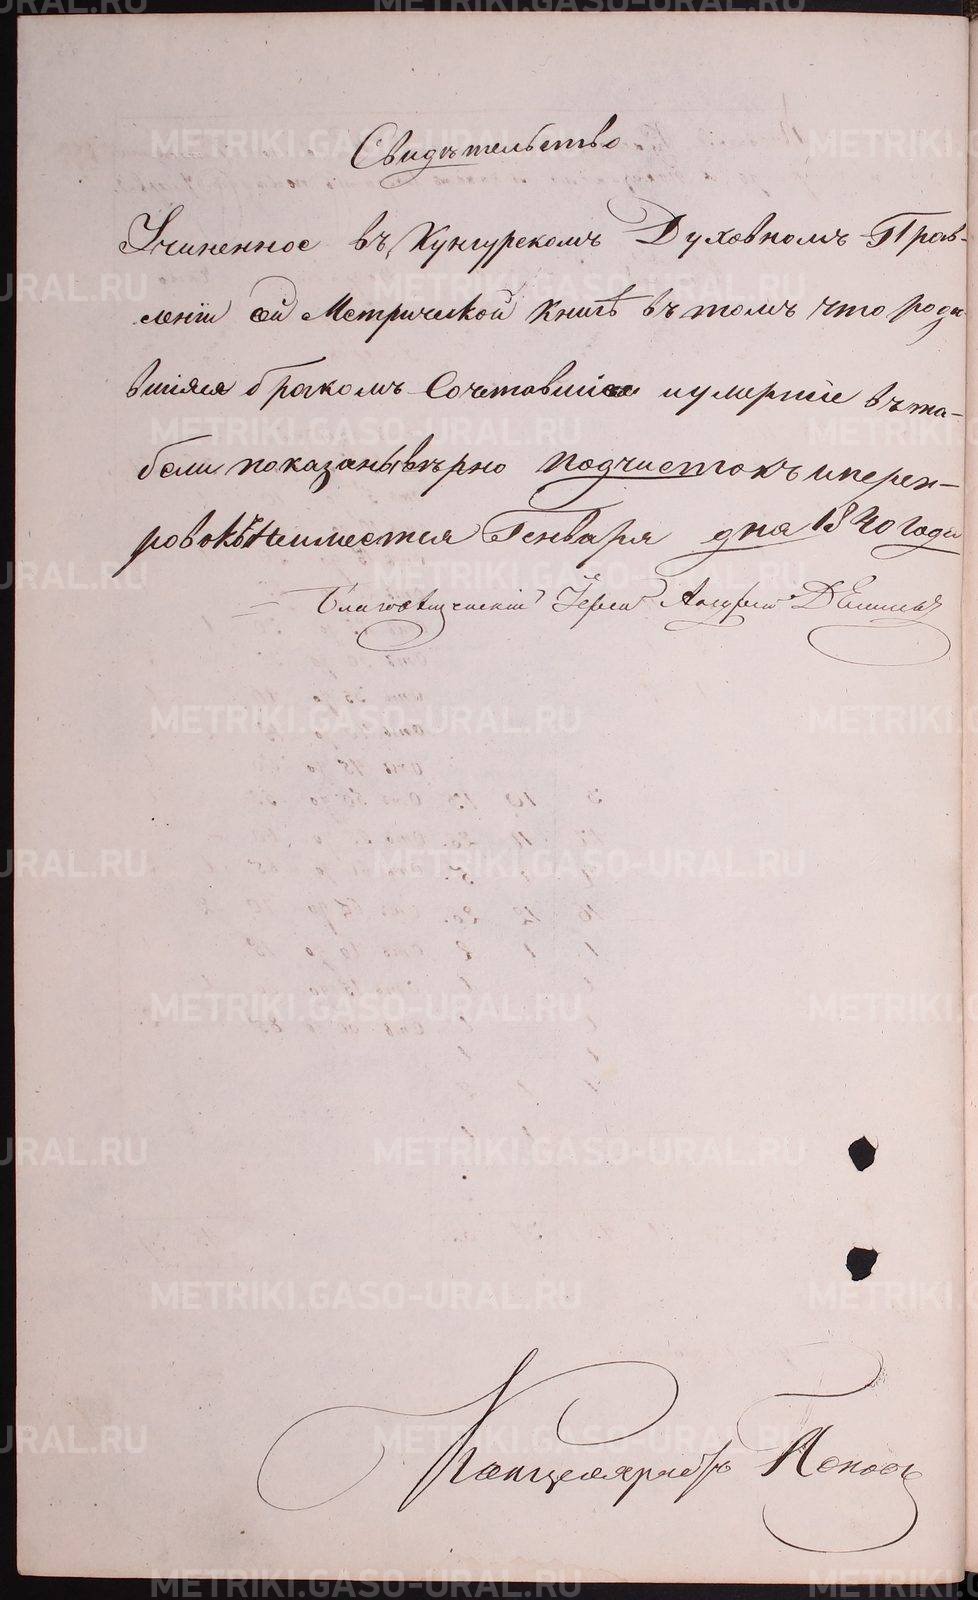 Свидѣтельство
Учиненное въ Кунгурскомъ Духовномъ Прав-
леніи сей Метрической книгѣ въ томъ что роди-
вшіяся бракомъ Сочетавшіеся и умершіе въ та-
бели показаны вѣрно подчистокъ и переп-
ровокъ Неимѣется Генваря дня 1840 года
Благовѣщенскій Іерей
Канцеляристъ Поповъ
METRIKI.GASO-URAL.RU